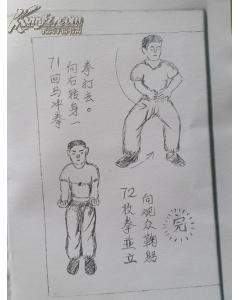 71回马冲拳
向右转身一
拳打去。
72收拳並立
向观众鞠躬
完